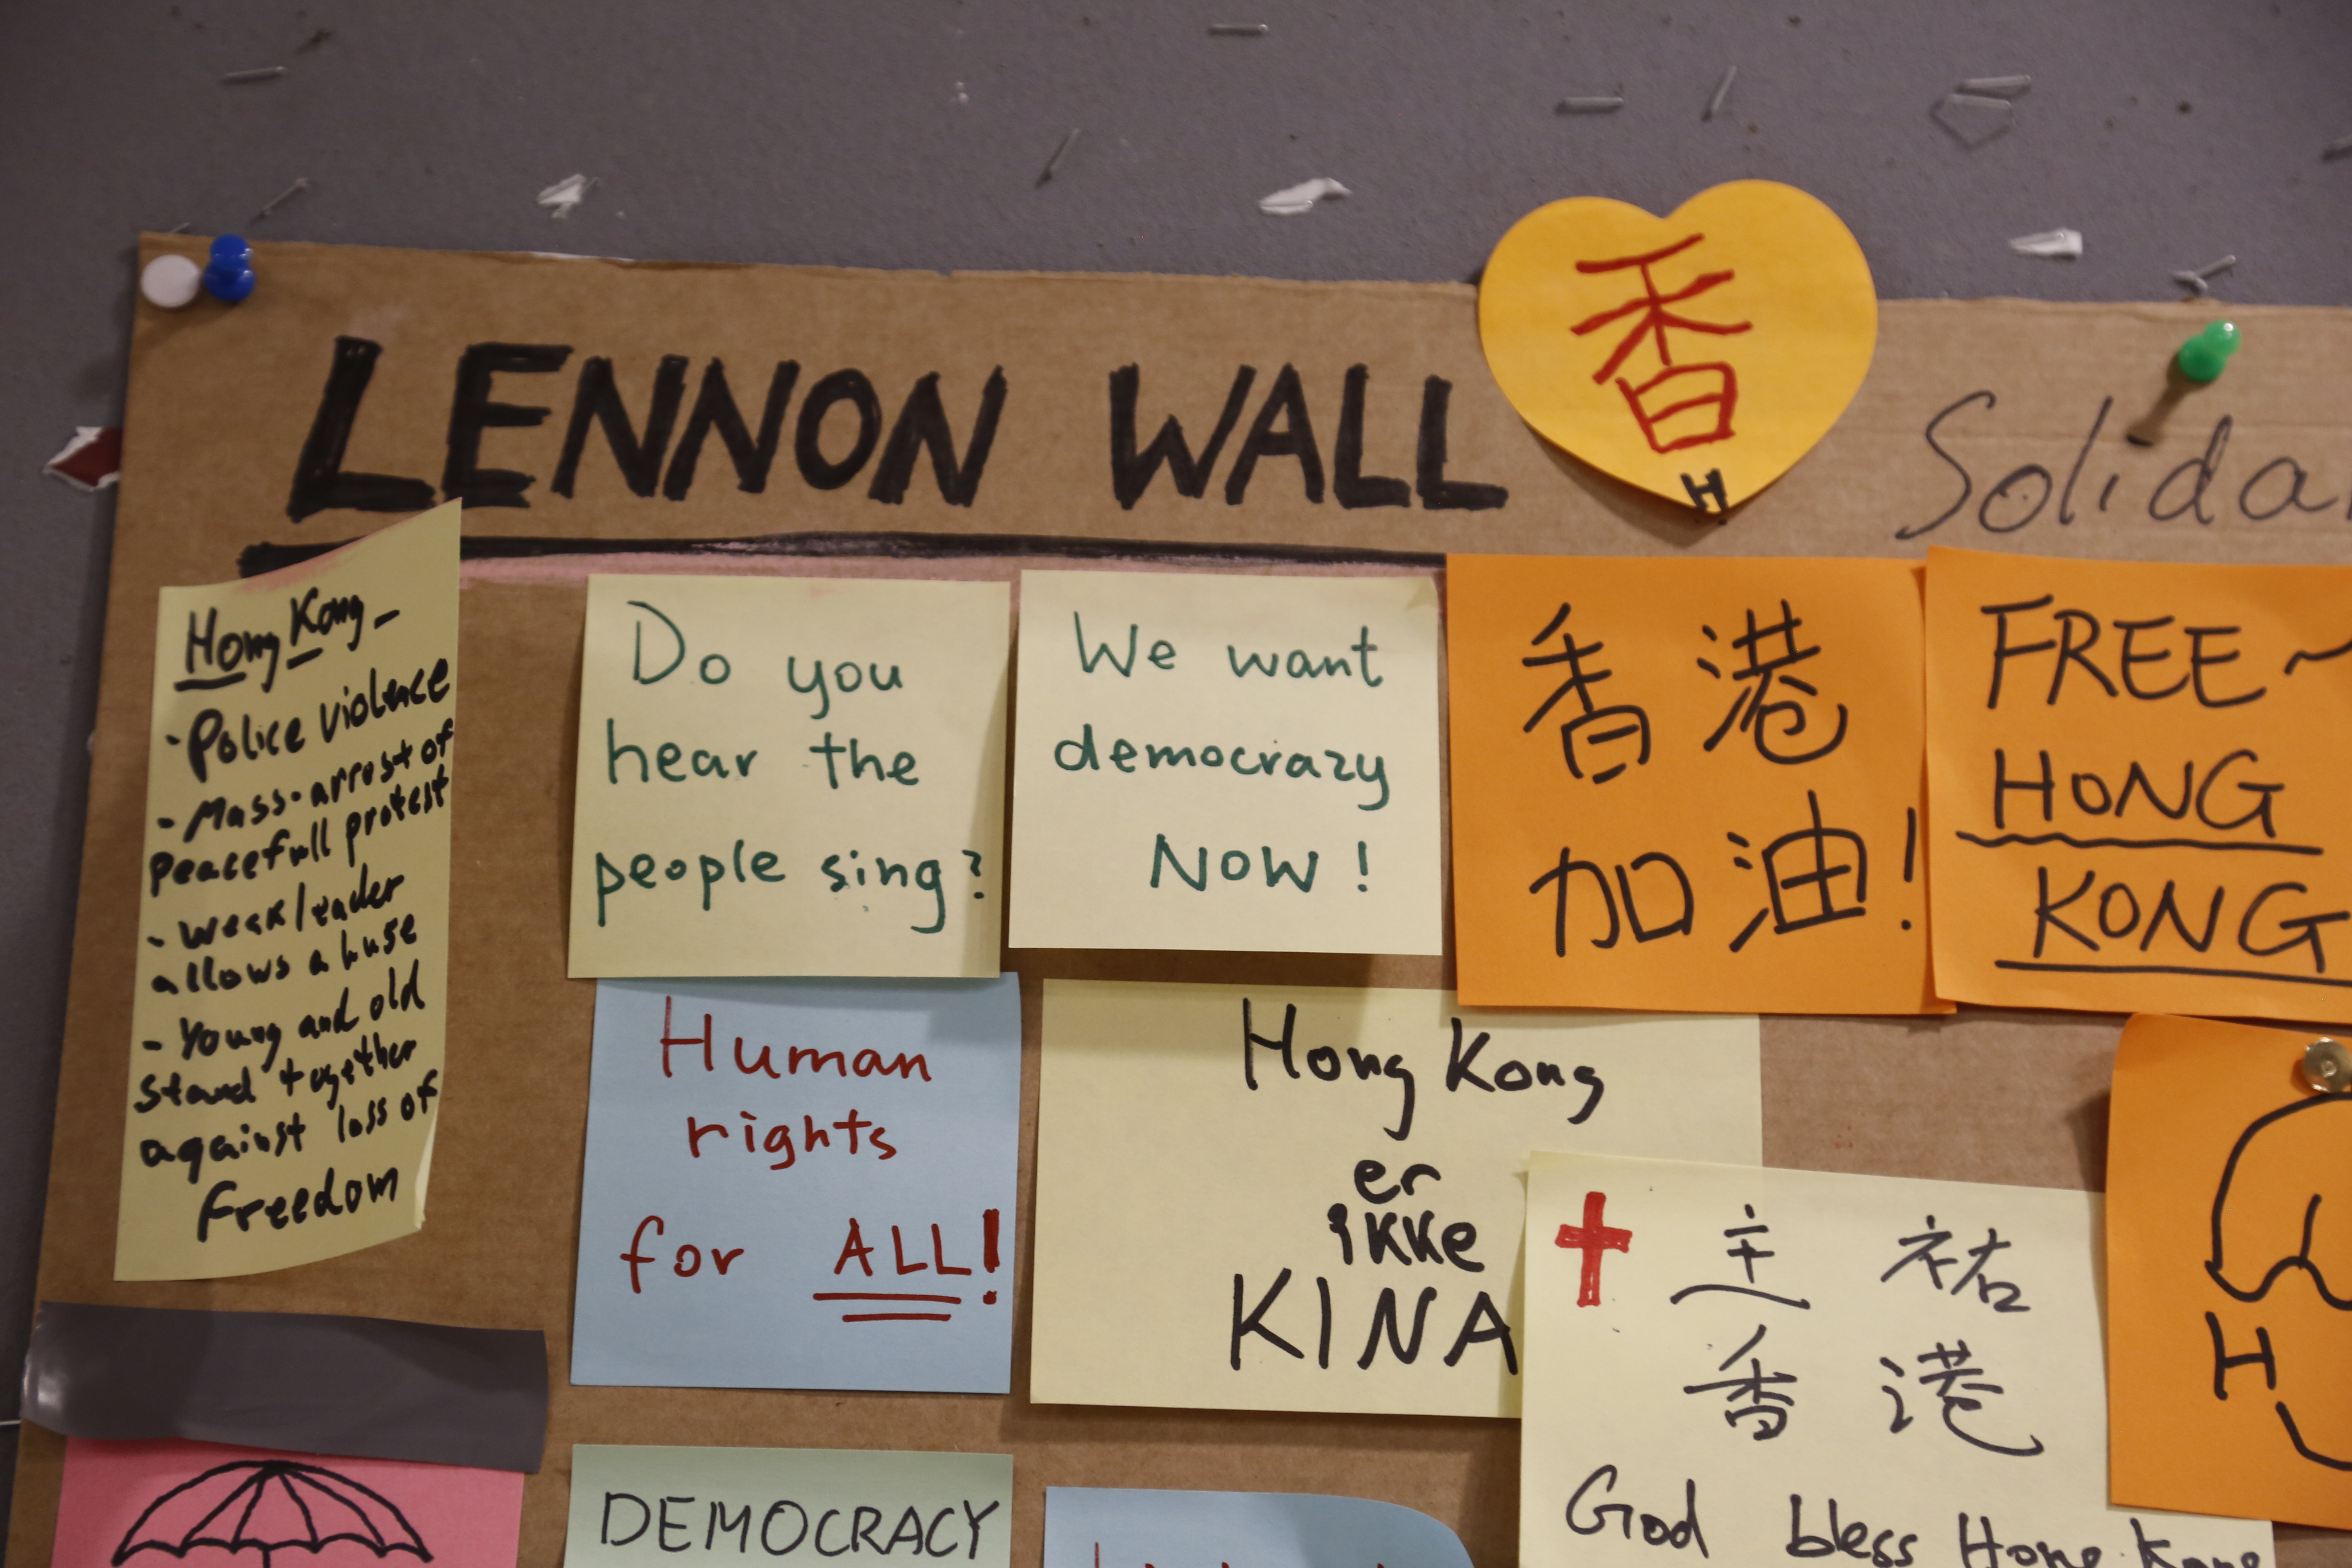 LENNON WALL
香
H
Solida
Hong Kong -
- Police violence
- Mass-arrest of
peacefull protest
- Weak leader
allows a huse
- Young and old
stand together
against loss of
Freedom
Do you
hear the
people sing?
We want
democrazy
NOW !
香港
加油!
FREE ~
HONG
KONG
Human
rights
for ALL!
Hong Kong
er
ikke
KINA
主祐
香港
God bless Hong Kong
H
DEMOCRACY